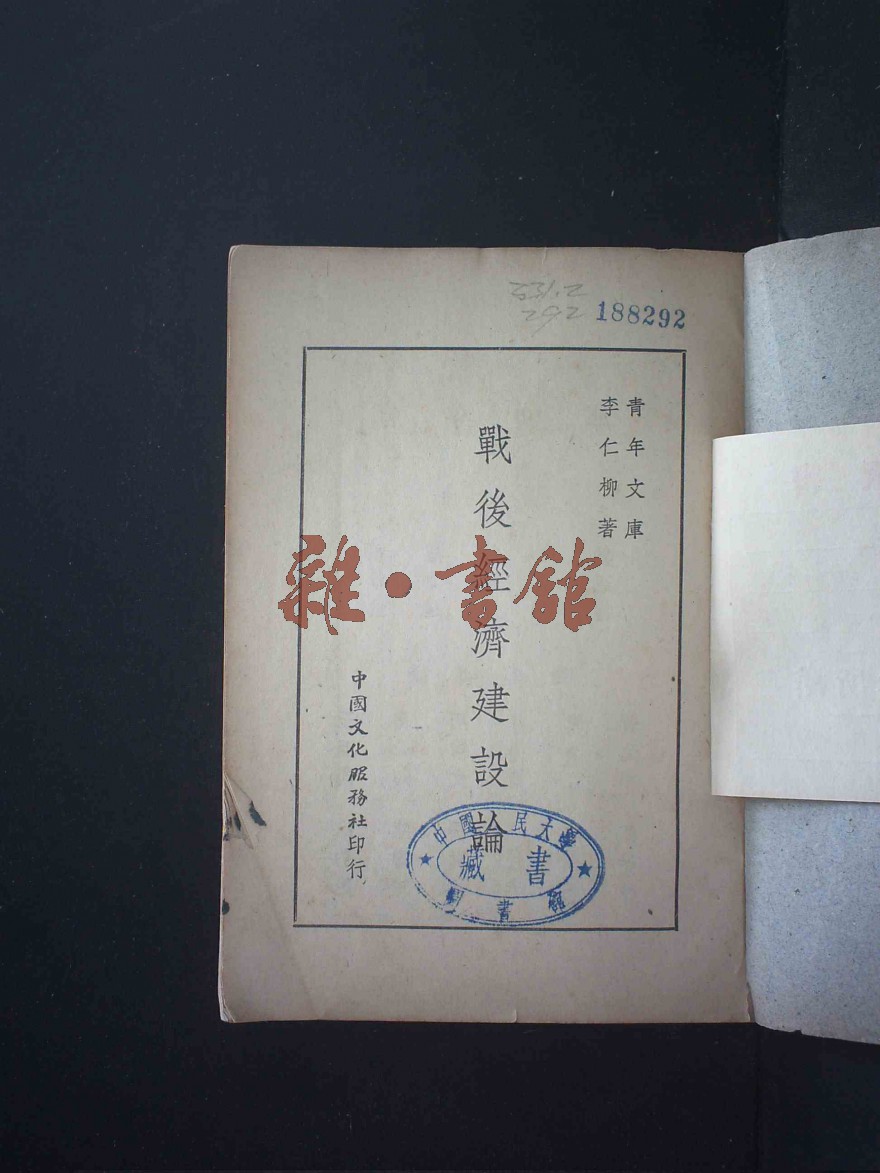 188292
青年文庫
李仁柳著
戰後經濟建設論
中國文化服務社印行
雜·書館
中國人民大學
藏書
圖書館